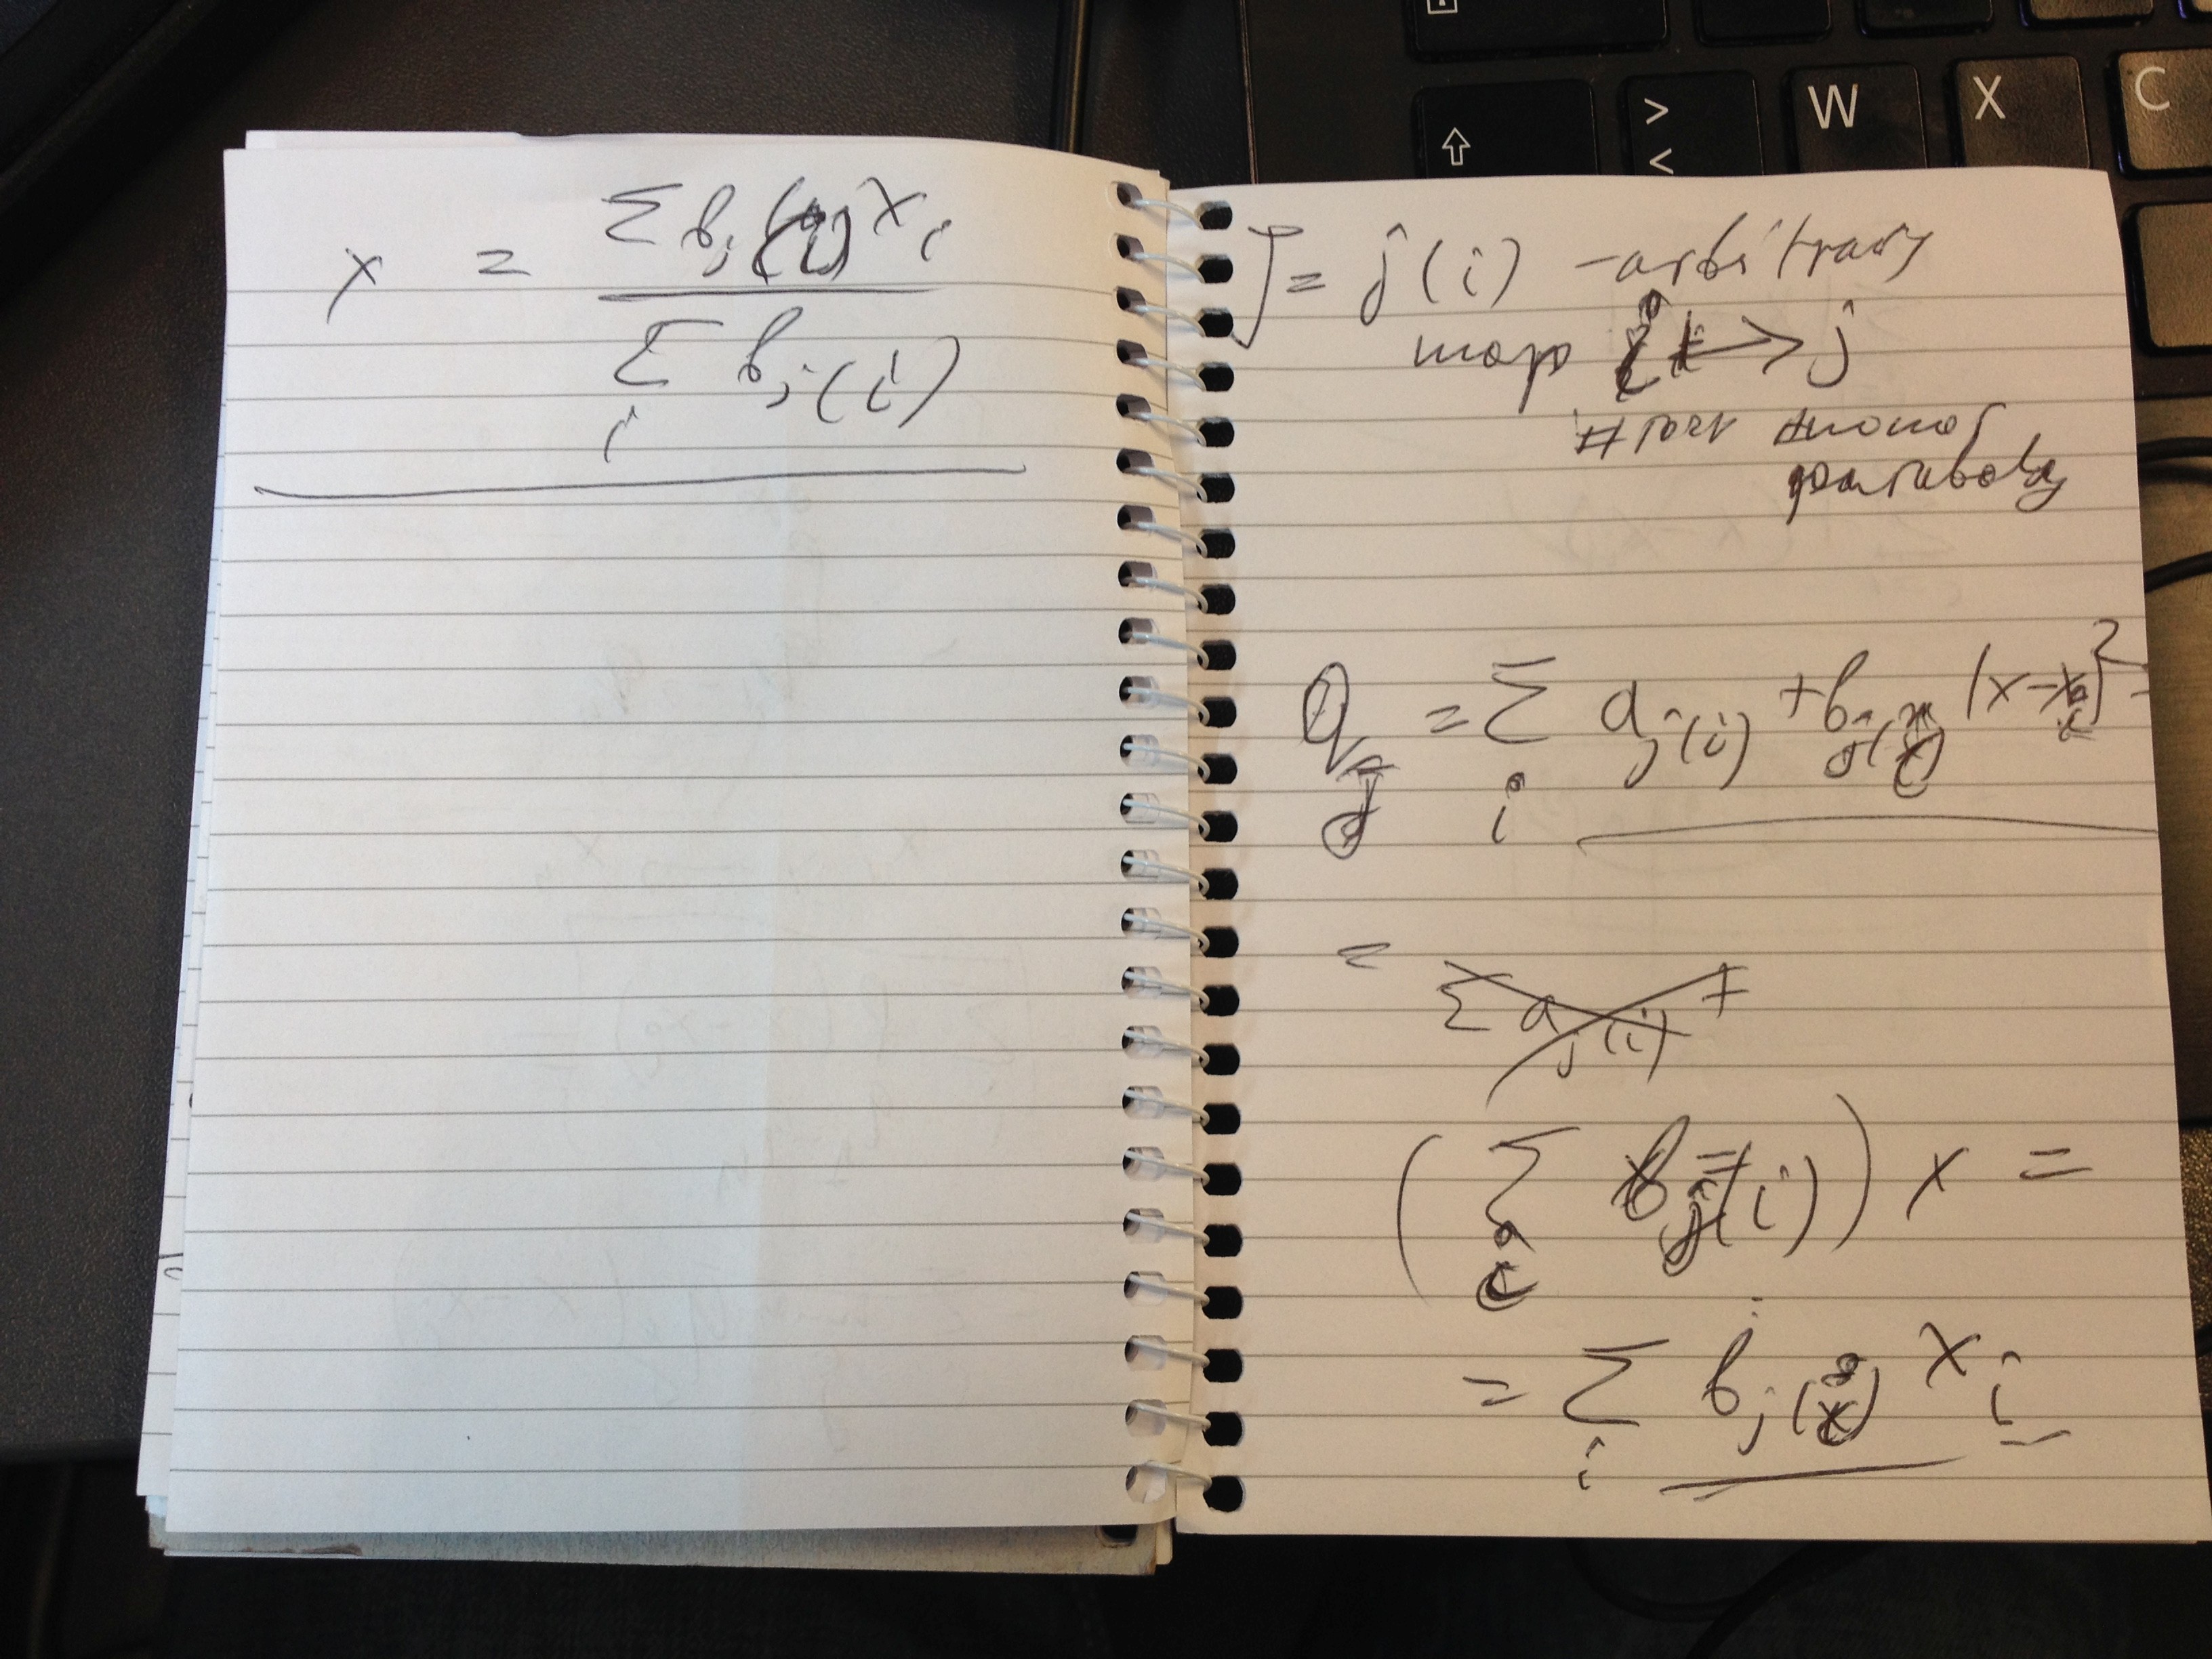 x = Σ b_{j(i)} x_i
Σ_i b_{j(i)}
J = j(i) - arbitrary
map i → j
parabola
Q_J = Σ_i a_{j(i)} + b_{j(i)} (x-x_i)^2
=
Σ a_{j(i)} +
(Σ_i b_{j(i)}) x =
= Σ_i b_{j(i)} x_i
>
<
W
X
C